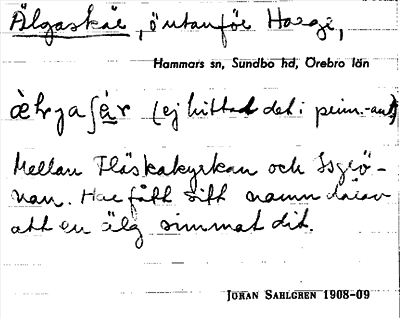 Älgaskär, ö utanför Harge,
Hammars sn, Sundbo hd, Örebro län
(ej hittad det i prim.-ant)
Mellan Fläskakyrkan och Isgrö-
nan. Har fått sitt namn därav
att en älg simmat dit.
JÖRAN SAHLGREN 1908-09